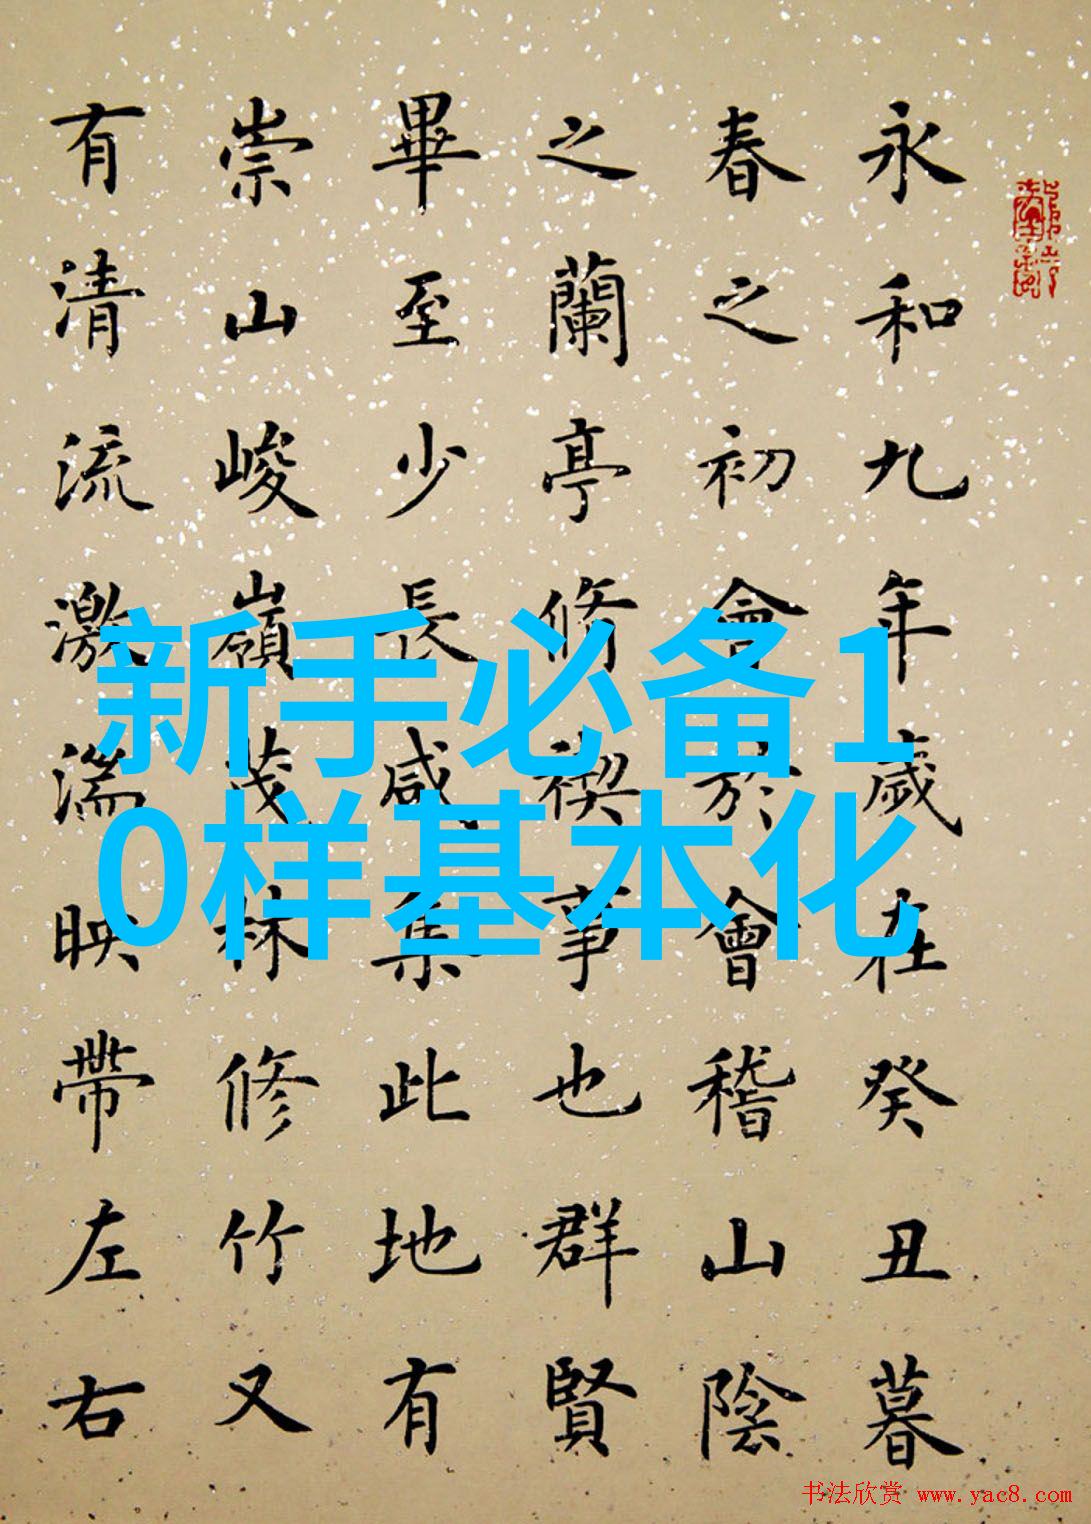 永和九年歲在癸丑暮
春之初會於會稽山陰
之蘭亭脩禊事也群賢
畢至少長咸集此地有
崇山峻嶺茂林修竹又
有清流激湍映帶左右
新手必备1
0样基本化
书法欣赏 www.yac8.com